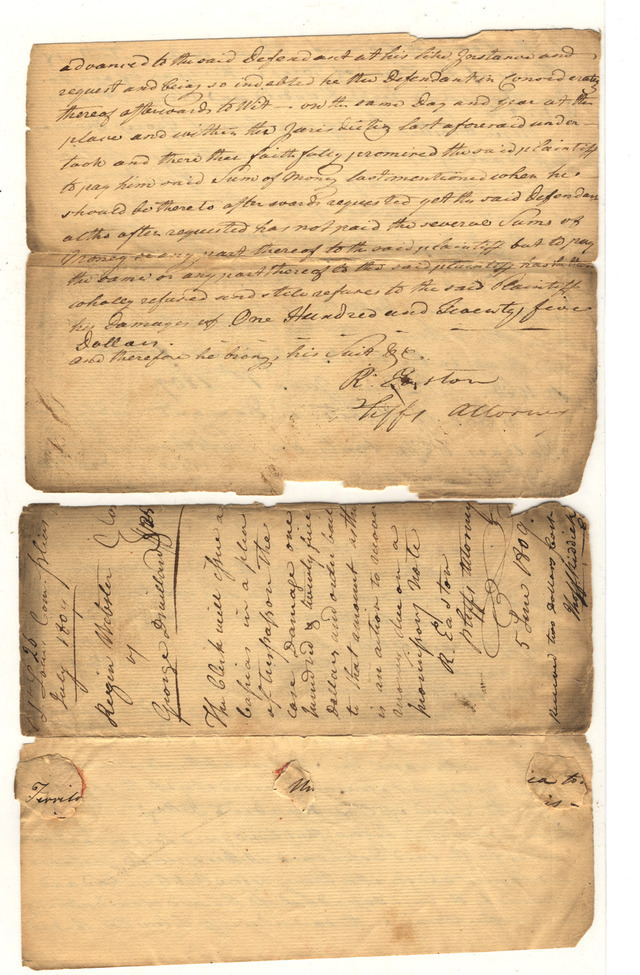 advanced to the said Defendant at his like Instance and
request and being so indebted he the Defendant in Consideration
thereof afterwards to Wit on the same Day and year at the
place and within the Jurisdiction last aforesaid under
took and there then faithfully promised the said plaintiff
to pay him said Sum of Money last mentioned when he
should be thereto afterwards requested yet the said Defendan
altho after requested has not paid the several Sums of
money or any part thereof to the said plaintiff but to pay
the same or any part thereof to the said plaintiff hath
wholly refused and still refuses to the said Plaintiffs
his Damages of One Hundred and Twenty five
Dollars.
and therefore he brings his Suit &c.
R. Easton
Plffs Attorney
Com. pleas
July 1809
Rezin Webster
v
George
The Clerk will issue a
Capias in a plea
of trespass on the
case Damage one
hundred & twenty five
dollars and order bail
to that amount
is an action to recover
money due on a
promissory note
R. Easton
plffs attorney
5 June 1809
two dollars
Territo
Un
ia to
is -